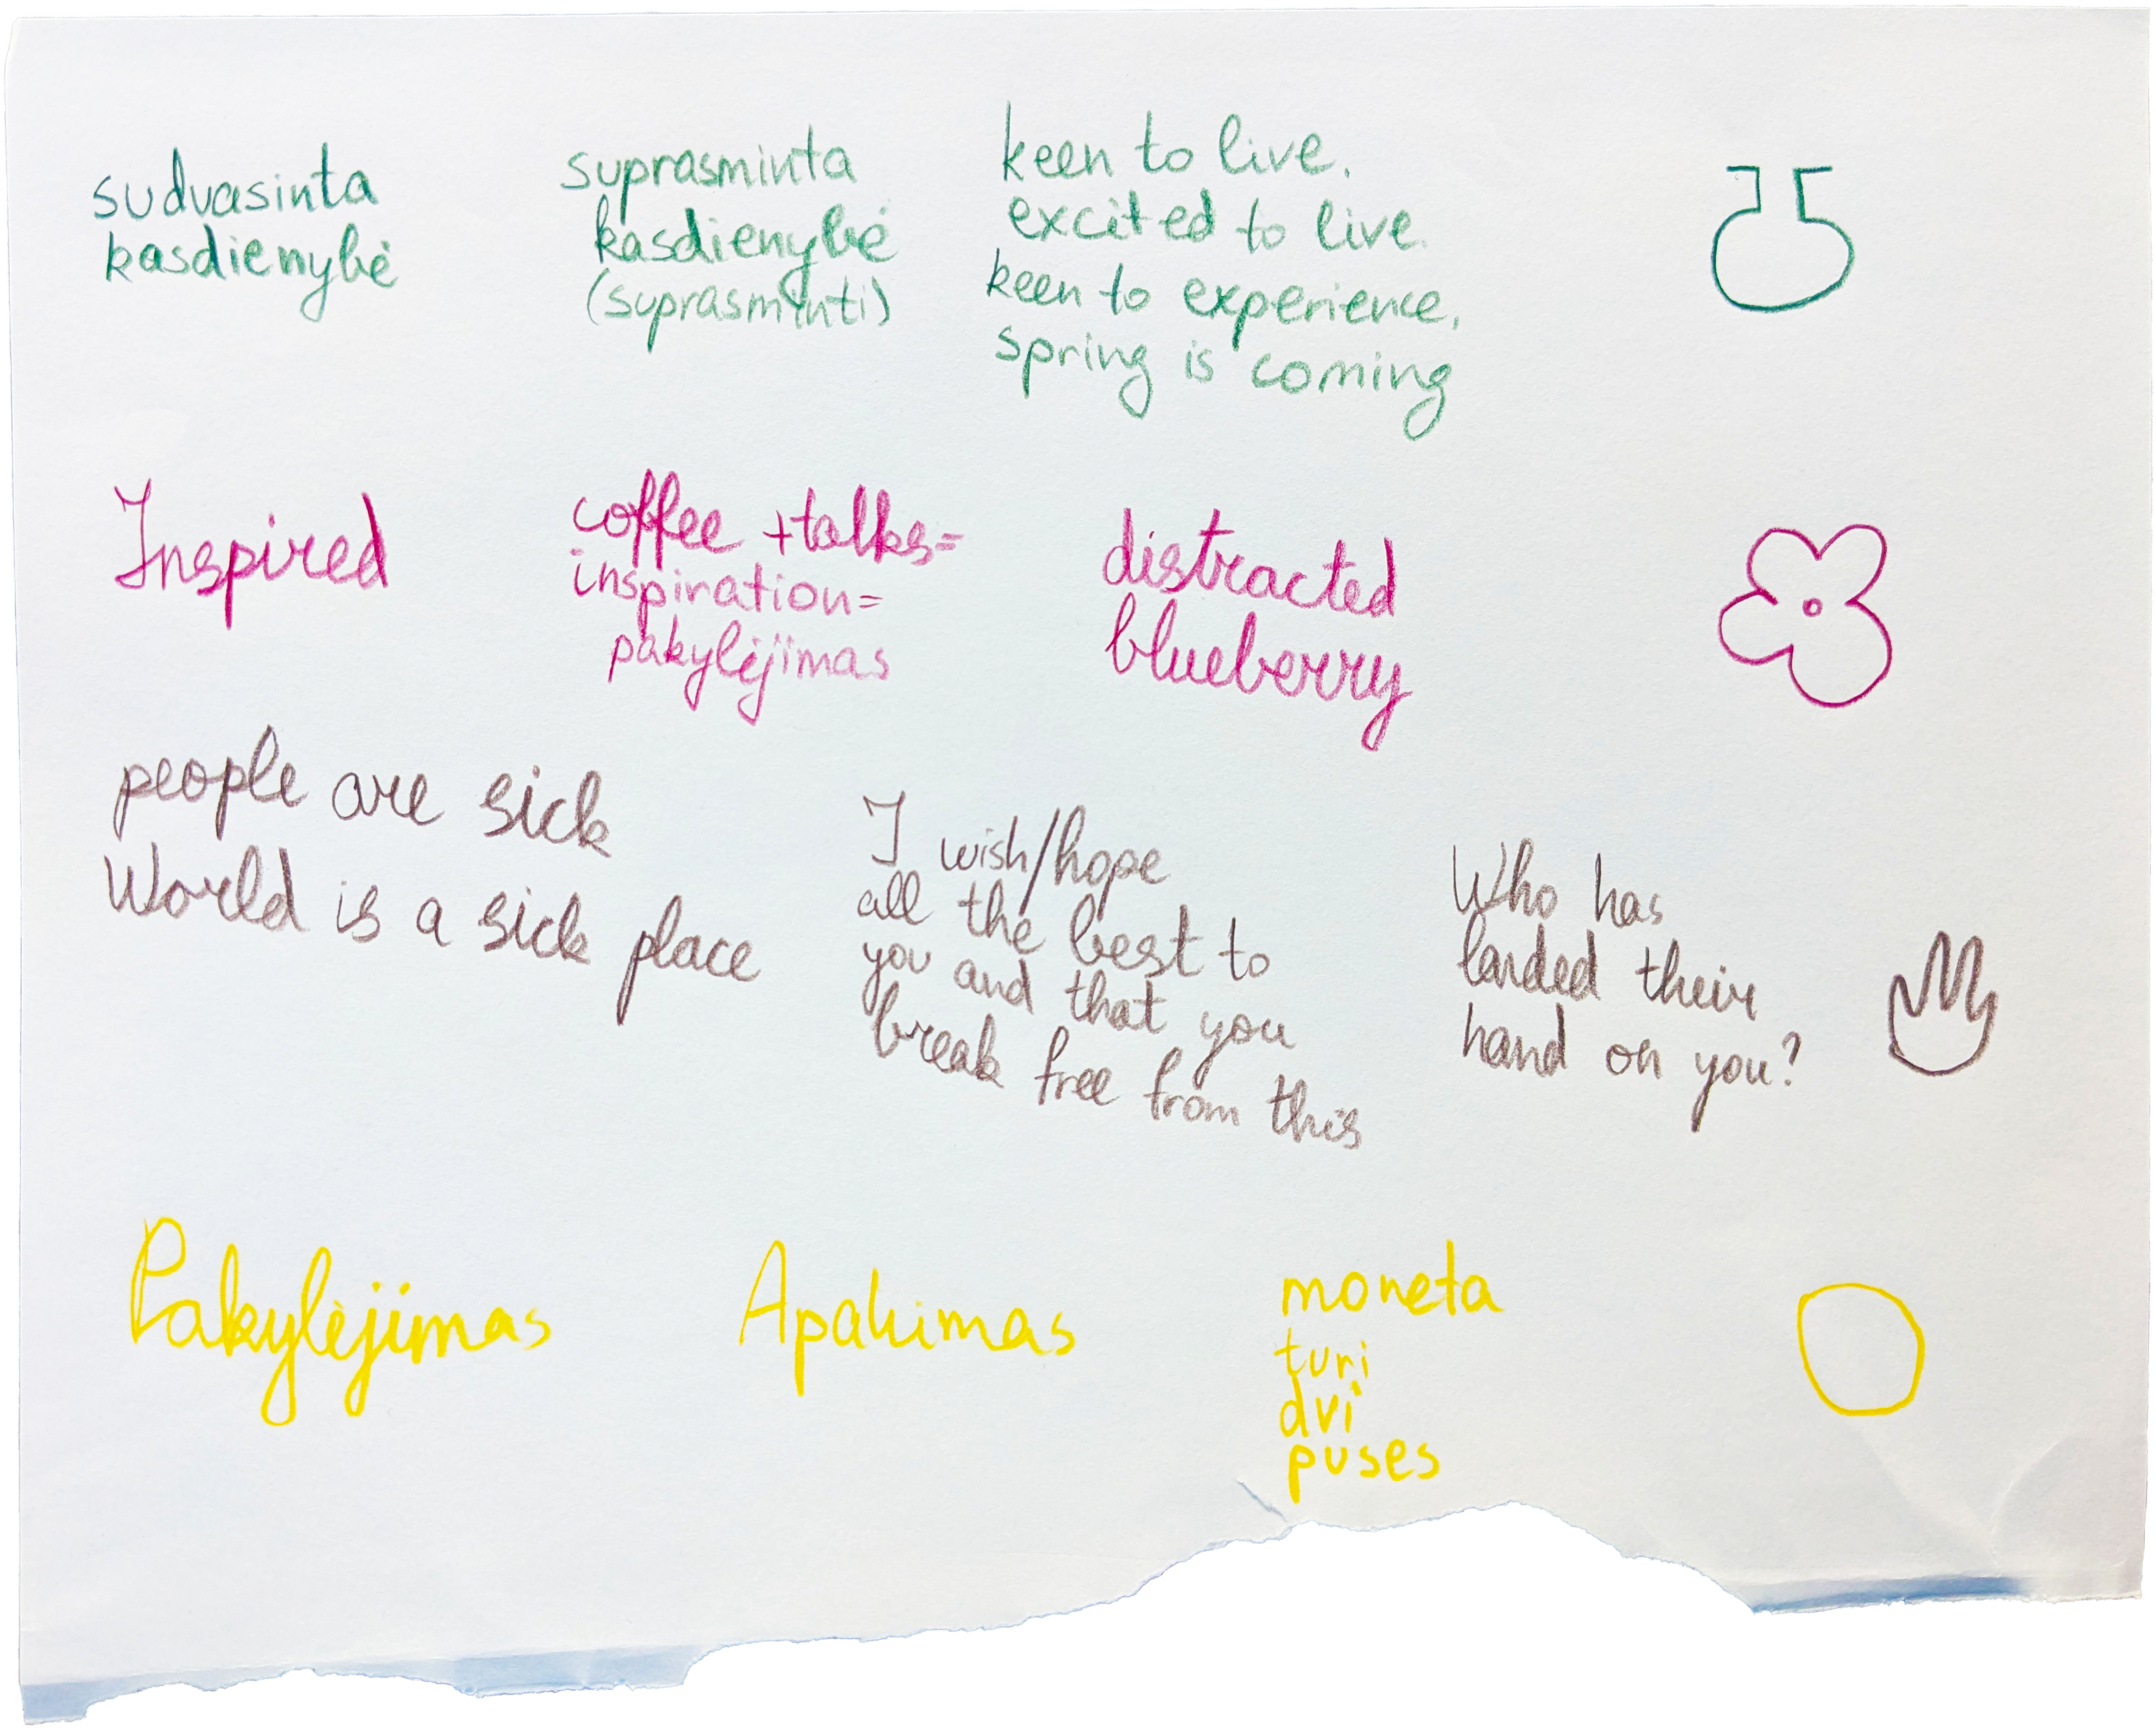 sudvasinta
kasdienybė
suprasminta
kasdienybė
(suprasminti)
keen to live.
excited to live.
keen to experience,
spring is coming
Inspired
coffee + talks =
inspiration =
pakylėjimas
distracted
blueberry
people are sick
World is a sick place
I wish/hope
all the best to
you and that you
break free from this
Who has
landed their
hand on you?
Pakylėjimas
Apakimas
moneta
turi
dvi
puses